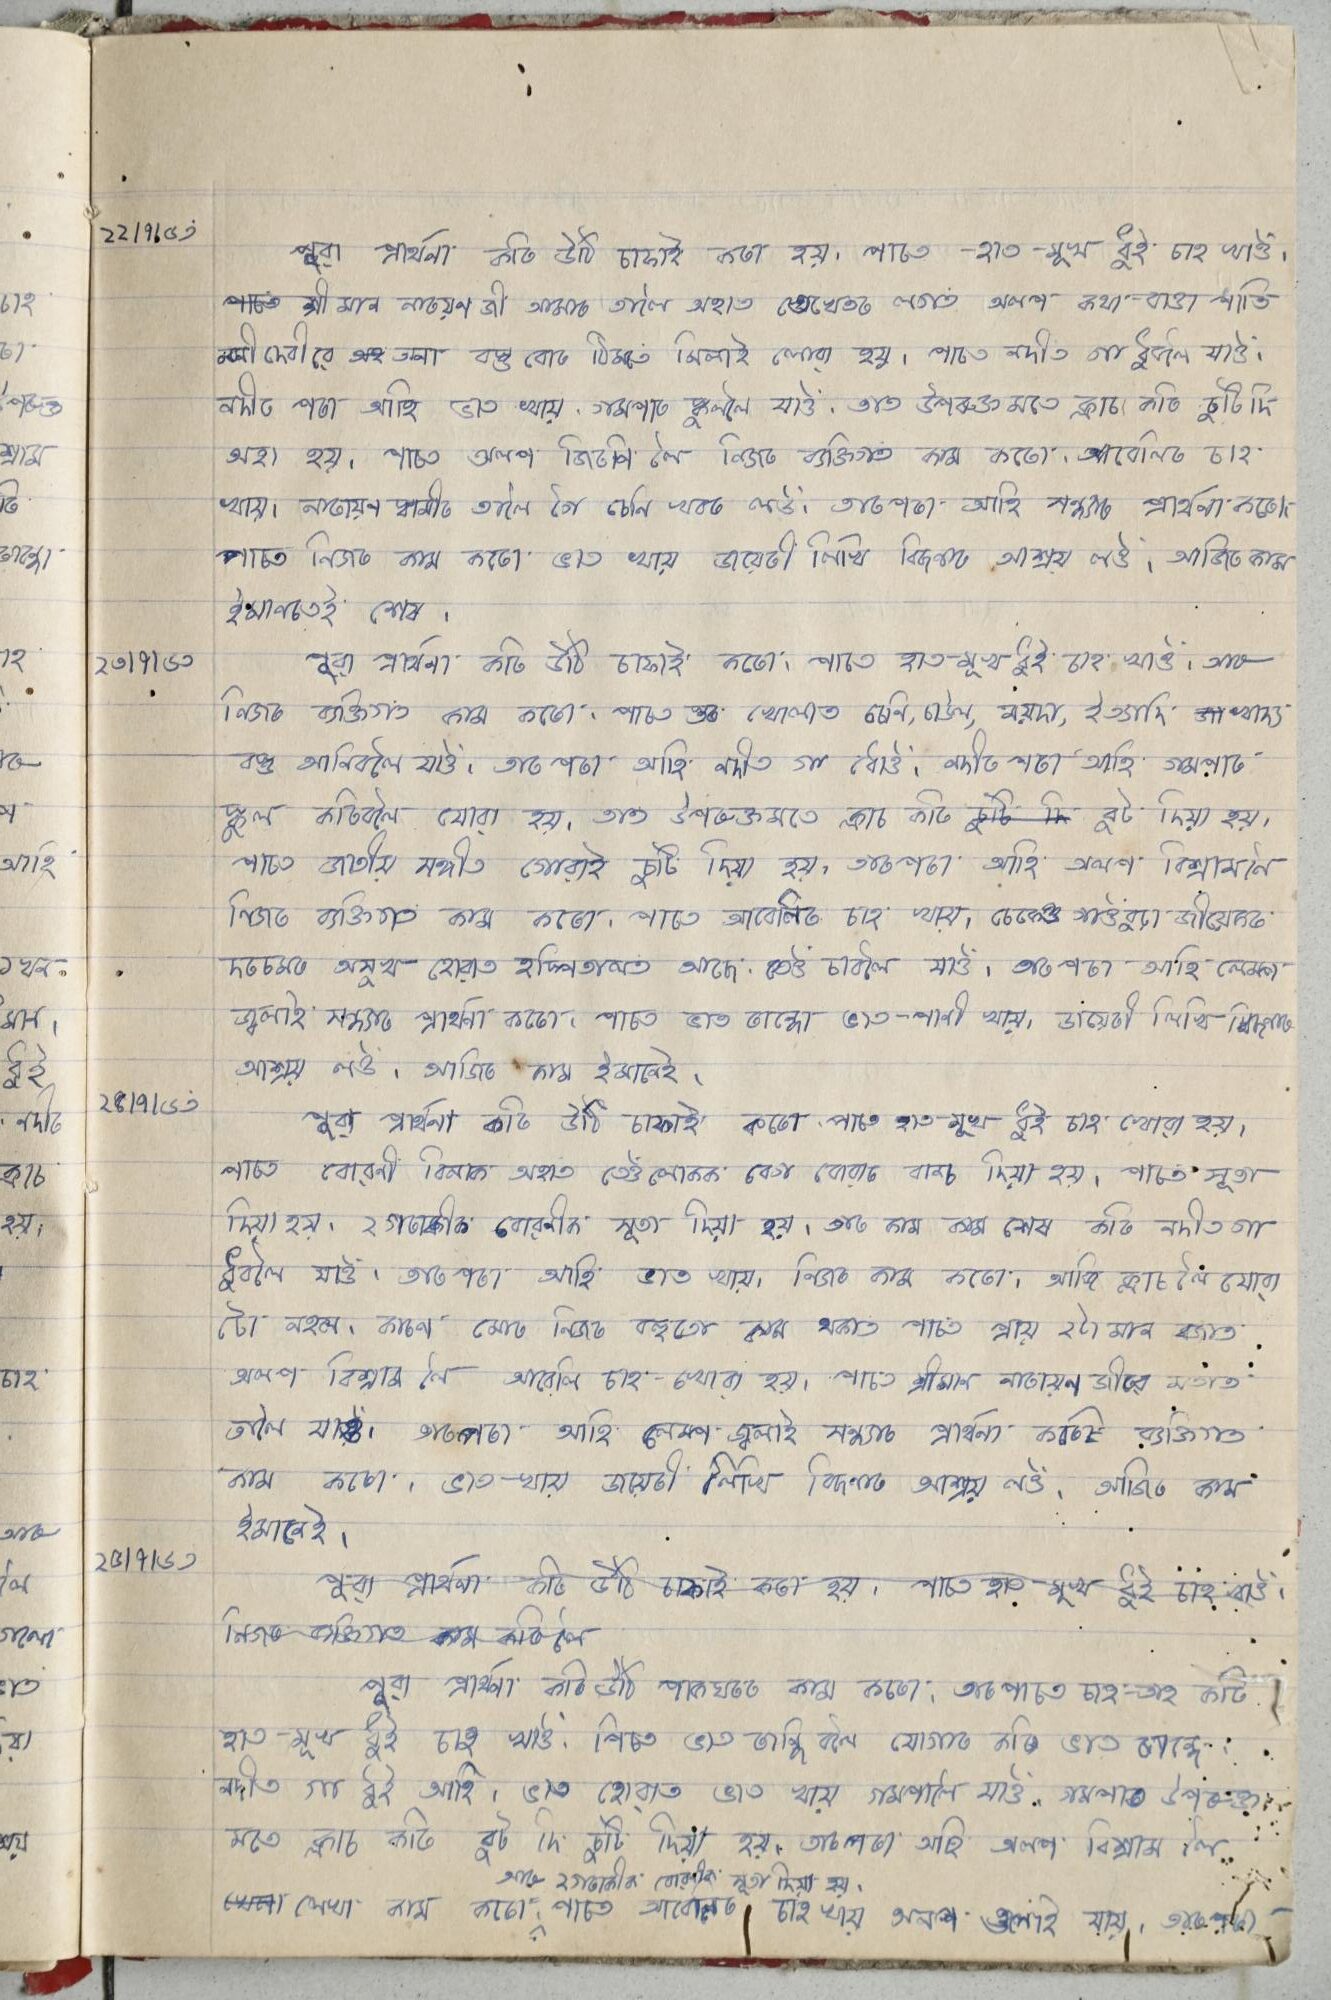 22/9/৬৩
পুৱা প্ৰাৰ্থনা কৰি উঠি চাফাই কৰা হয়। পাচত হাত-মুখ ধুই চাহ খাওঁ।
পাচত শ্ৰী মান নাৰায়ণ জী আমাৰ তালৈ অহাত তেখেতৰ লগত অলপ কথা-বাৰ্ত্তা পাতি
দেবীৰে অনা বস্তু বোৰ ঠিকতে মিলাই লোৱা হয়। পাচত নদীত গা ধুবলৈ যাওঁ।
নদীৰ পৰা আহি ভাত খায় গমপাৰ স্কুললৈ যাওঁ। তাত উপৰুক্ত মতে ক্লাচ কৰি ছুটি দি
অহা হয়। পাচত অলপ জিৰণি লৈ নিজৰ ব্যক্তিগত কাম কৰো। আবেলিত চাহ
খায়। নাৰায়ণ স্বামীৰ তালৈ গৈ চেনি খবৰ লওঁ। তাৰপৰা আহি সন্ধ্যাৰ প্ৰাৰ্থনা কৰো।
পাচত নিজৰ কাম কৰো ভাত খায় ডায়েৰী লিখি বিছনাত আশ্ৰয় লওঁ। আজিৰ কাম
ইমানতেই শেষ।
২৩/9/৬৩
পুৱা প্ৰাৰ্থনা কৰি উঠি চাফাই কৰো। পাচত হাত-মুখ ধুই চাহ খাওঁ। আৰু
নিজৰ ব্যক্তিগত কাম কৰো। পাচত খোলাত চেনি, চাউল, ময়দা, ইত্যাদি খাদ্য
বস্তু আনিবলৈ যাওঁ। তাৰ পৰা আহি নদীত গা ধোওঁ। নদীৰ পৰা আহি গমপাৰ
স্কুল কৰিবলৈ যোৱা হয়। তাত উপৰুক্তমতে ক্লাচ কৰি ছুটি দি বুট দিয়া হয়।
পাচত জাতীয় সঙ্গীত গোৱাই ছুটি দিয়া হয়। তাৰপৰা আহি অলপ বিশ্ৰাম লৈ
নিজৰ ব্যক্তিগত কাম কৰো। পাচত আবেলিত চাহ খায়। গাওঁবুঢ়া জীয়েকৰ
অসুখ হোৱাত হস্পিতালত আছে। তেওঁ চাবলৈ যাওঁ। তাৰ পৰা আহি লেম্প
জ্বলাই সন্ধ্যাৰ প্ৰাৰ্থনা কৰো। পাচত ভাত ৰান্ধো ভাত-পানী খায়। ডায়েৰী লিখি বিছনাত
আশ্ৰয় লওঁ। আজিৰ কাম ইমানেই।
২৪/9/৬৩
পুৱা প্ৰাৰ্থনা কৰি উঠি চাফাই কৰো। পাচত হাত-মুখ ধুই চাহ খোৱা হয়।
পাচত বোৱনী বিলাক অহাত তেওঁলোকক বোৱাৰ দিয়া হয়। পাচত সূতা
দিয়া হয়। ২ গৰাকীক বোৱনীক সূতা দিয়া হয়। তাৰ কাম কাজ শেষ কৰি নদীত গা
ধুবলৈ যাওঁ। তাৰ পৰা আহি ভাত খায়। নিজৰ কাম কৰো। আজি ক্লাচ লৈ যোৱা
টো নহল। কাৰণ মোৰ নিজৰ বহুতো কাম থকাত পাচত প্ৰায় ২টা মান বজাত
অলপ বিশ্ৰাম লৈ আবেলি চাহ-খোৱা হয়। পাচত শ্ৰীমান নাৰায়ণ জীৰে
তালৈ যাওঁ। তাৰপৰা আহি লেম্প জ্বলাই সন্ধ্যাৰ প্ৰাৰ্থনা কৰি ব্যক্তিগত
কাম কৰো। ভাত খায় ডায়েৰী লিখি বিছনাত আশ্ৰয় লওঁ। আজিৰ কাম
ইমানেই।
২৫/9/৬৩
পুৱা প্ৰাৰ্থনা কৰি উঠি চাফাই কৰা হয়। পাচত হাত মুখ ধুই চাহ খাওঁ।
নিজৰ ব্যক্তিগত কাম কৰি লৈ
পুৱা প্ৰাৰ্থনা কৰি উঠি পাকঘৰৰ কাম কৰো। তাৰপাচত চাহ-তাহ কৰি
হাত-মুখ ধুই চাহ খাওঁ। পিচত ভাত ৰান্ধিবলৈ যোগাৰ কৰি ভাত ৰান্ধো।
নদীত গা ধুই আহি। ভাত হোৱাত ভাত খায় গমপালৈ যাওঁ। গমপাৰ উপৰুক্ত
মতে ক্লাচ কৰি বুট দি ছুটি দিয়া হয়। তাৰপৰা আহি অলপ বিশ্ৰাম লৈ
আৰু ২গৰাকীক বোৱনীক সূতা দিয়া হয়।
লেখা কাম কৰো। পাচত আবেলিত চাহ খায় অলপ যায়। তাৰপৰা